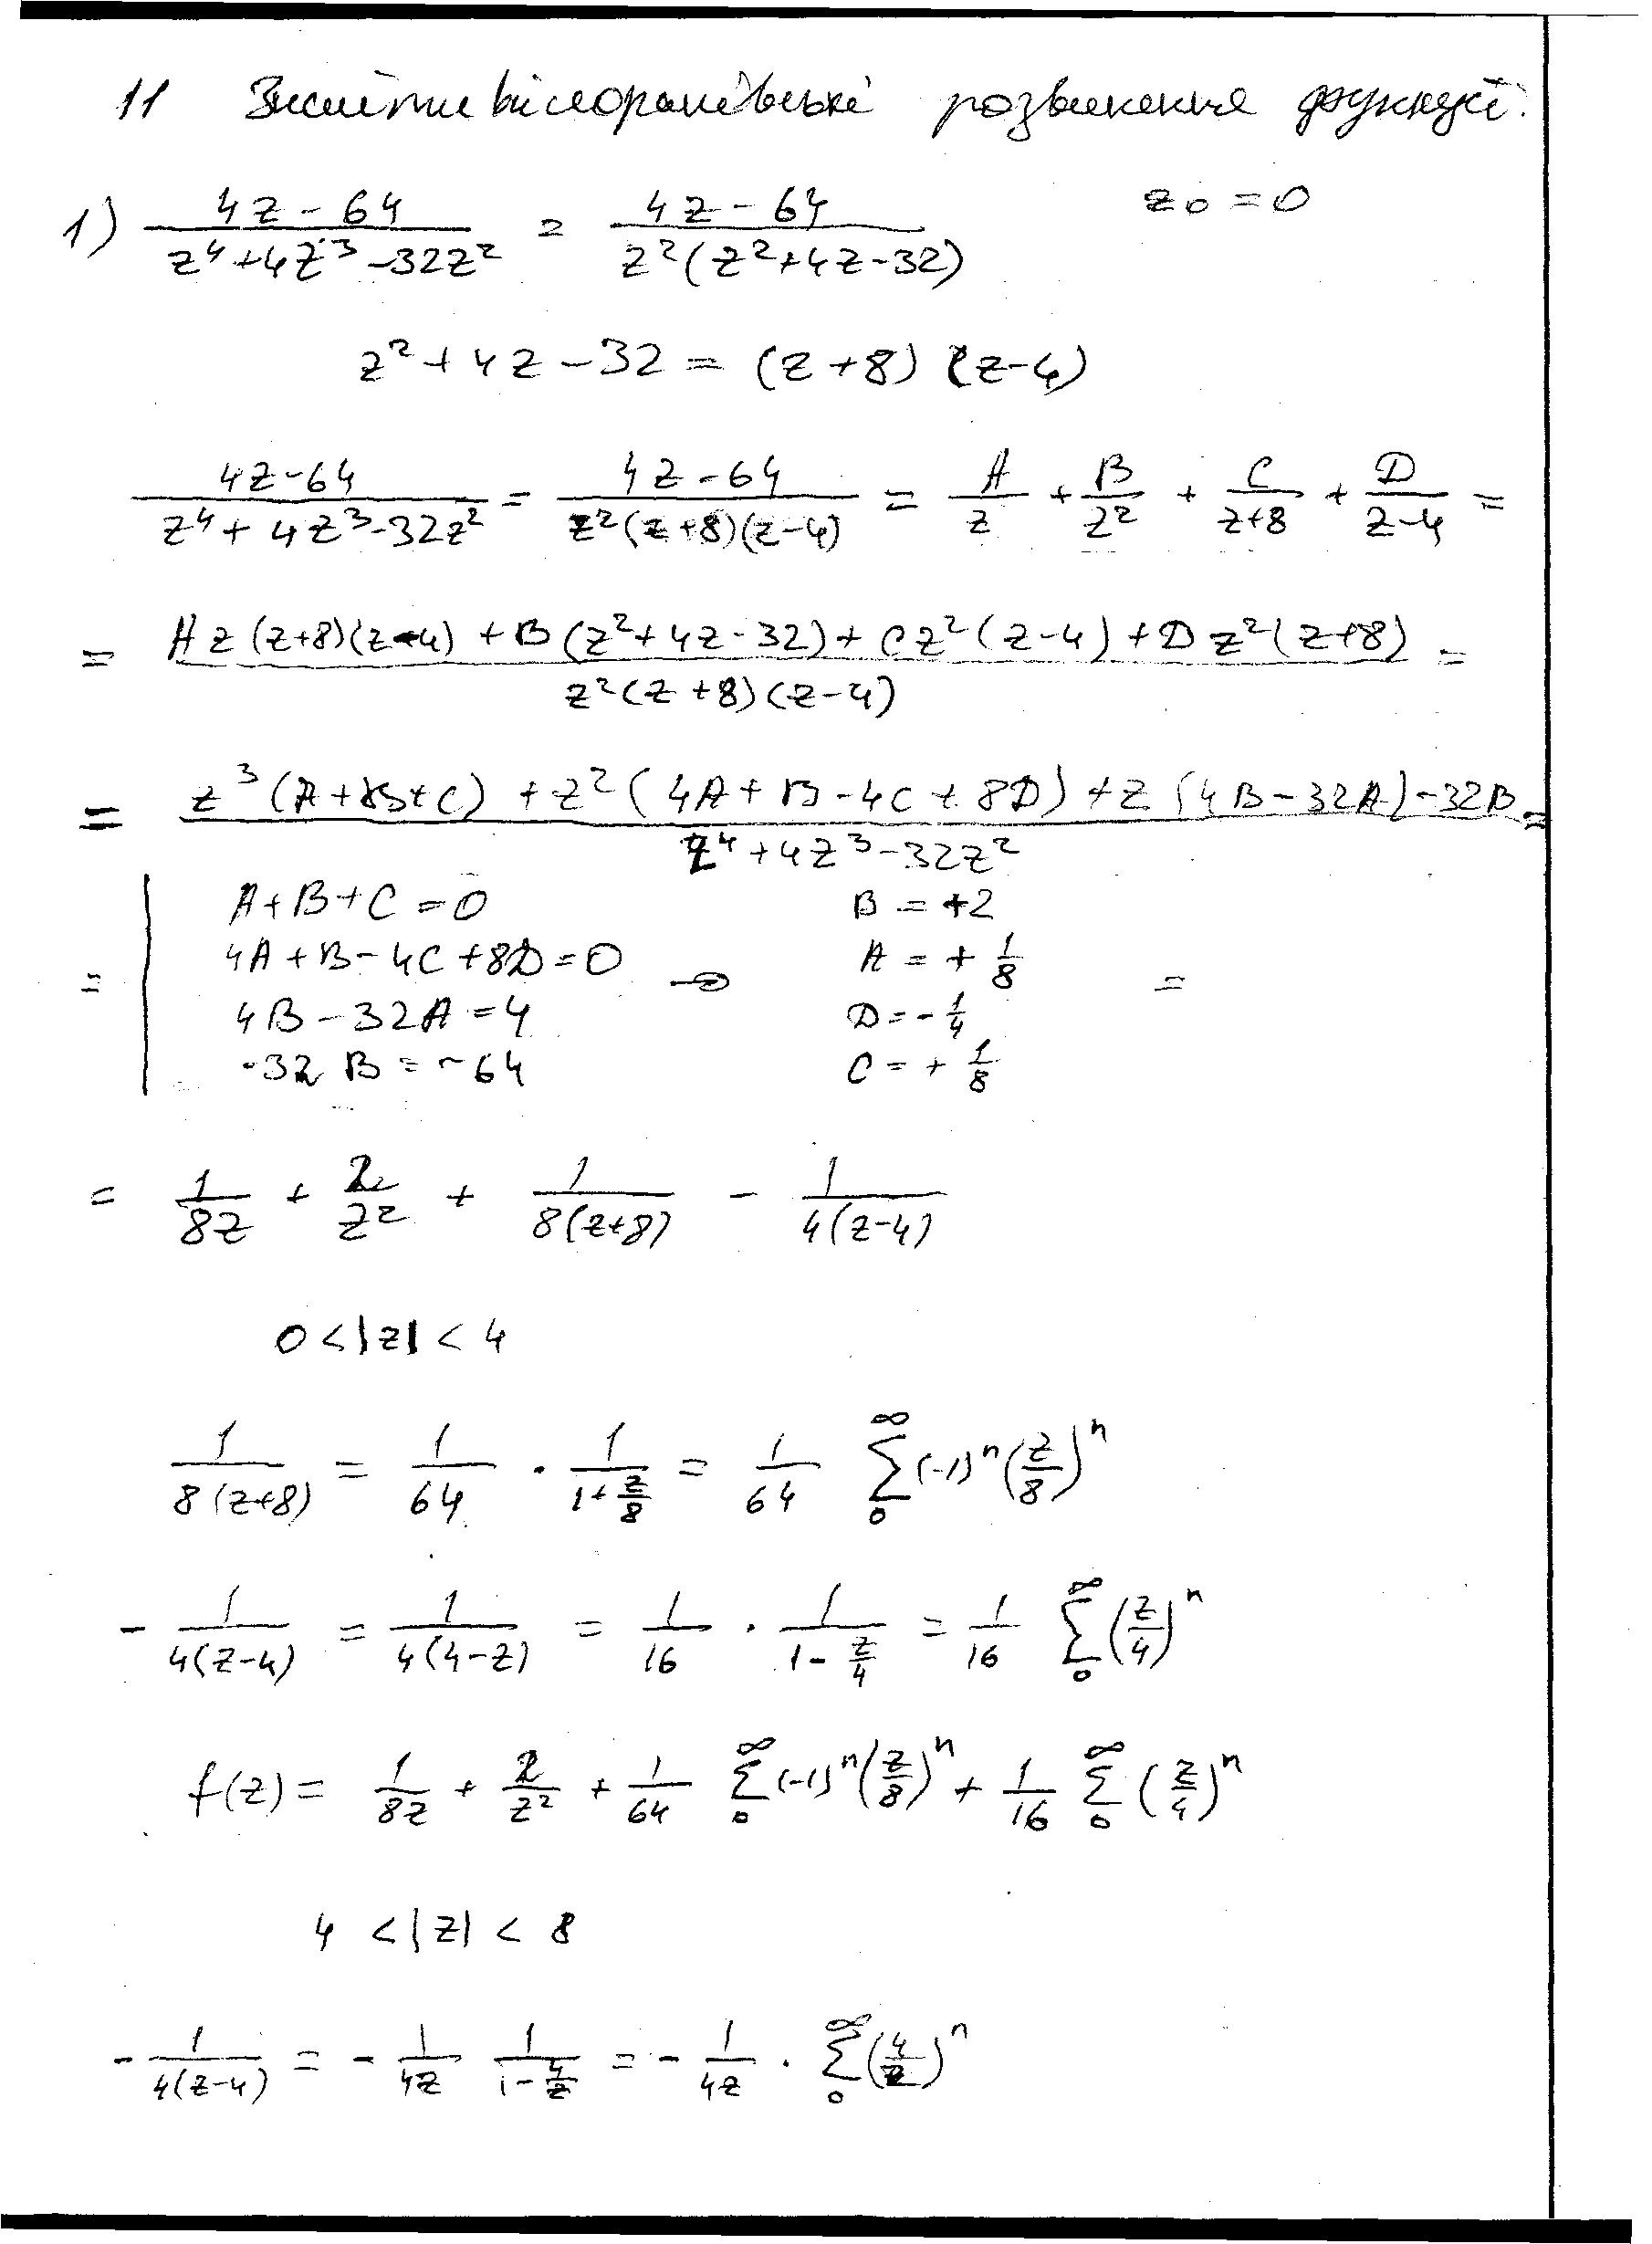 11 Знайти всі лоранівські розвинення функції.
1) (4z-64)/(z⁴+4z³-32z²) = (4z-64)/(z²(z²+4z-32))   z₀ = 0
z²+4z-32 = (z+8)(z-4)
(4z-64)/(z⁴+4z³-32z²) = (4z-64)/(z²(z+8)(z-4)) = A/z + B/z² + C/(z+8) + D/(z-4) =
= (Az(z+8)(z-4) + B(z²+4z-32) + Cz²(z-4) + Dz²(z+8))/(z²(z+8)(z-4)) =
= (z³(A+B+C) + z²(4A+B-4C+8D) + z(4B-32A) - 32B)/(z⁴+4z³-32z²) =
A+B+C=0   B = +2
= | 4A+B-4C+8D=0 → A = + 1/8 =
4B-32A=4   D = - 1/4
-32B = -64   C = + 1/8
= 1/(8z) + 2/z² + 1/(8(z+8)) - 1/(4(z-4))
0 < |z| < 4
1/(8(z+8)) = 1/64 · 1/(1+z/8) = 1/64 ∑₀^∞ (-1)ⁿ(z/8)ⁿ
- 1/(4(z-4)) = 1/(4(4-z)) = 1/16 · 1/(1-z/4) = 1/16 ∑₀^∞ (z/4)ⁿ
f(z) = 1/(8z) + 2/z² + 1/64 ∑₀^∞ (-1)ⁿ(z/8)ⁿ + 1/16 ∑₀^∞ (z/4)ⁿ
4 < |z| < 8
- 1/(4(z-4)) = - 1/(4z) 1/(1-4/z) = - 1/(4z) · ∑₀^∞ (4/z)ⁿ